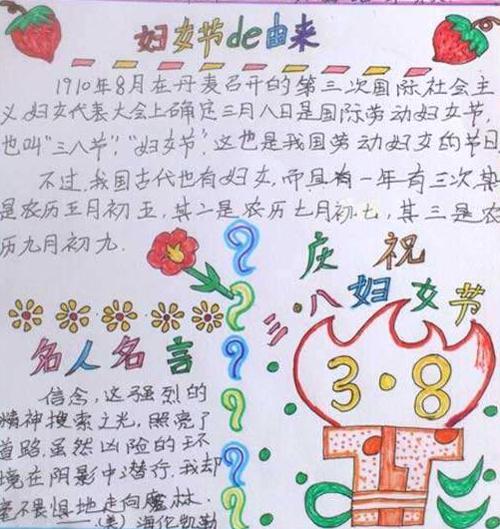 妇女节de由来
1910年8月在丹麦召开的第三次国际社会主
义妇女代表大会上确定三月八日是国际劳动妇女节,
也叫"三八节","妇女节",这也是我国劳动妇女的节日
不过,我国古代也有妇女,而且有一年有三次,其
是农历五月初五,其二是农历七月初七,其三是农
历九月初九.
庆祝
三八妇女节
3·8
名人名言
信念,这强烈的
精神搜索之光,照亮了
道路,虽然凶险的环
境在阴影中潜行,我却
毫不畏惧地走向魔林.
——(美)海伦凯勒